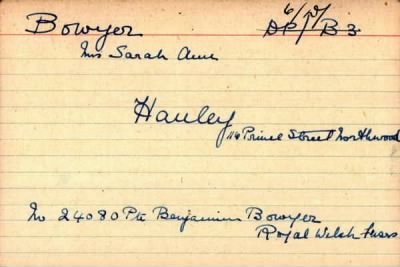 Bowyer 6/D/
DP/ B3
Mrs Sarah Ann
Hanley
116 Prince Street Northwood
No 24080 Pte Benjamin Bowyer
Royal Welsh Fusrs